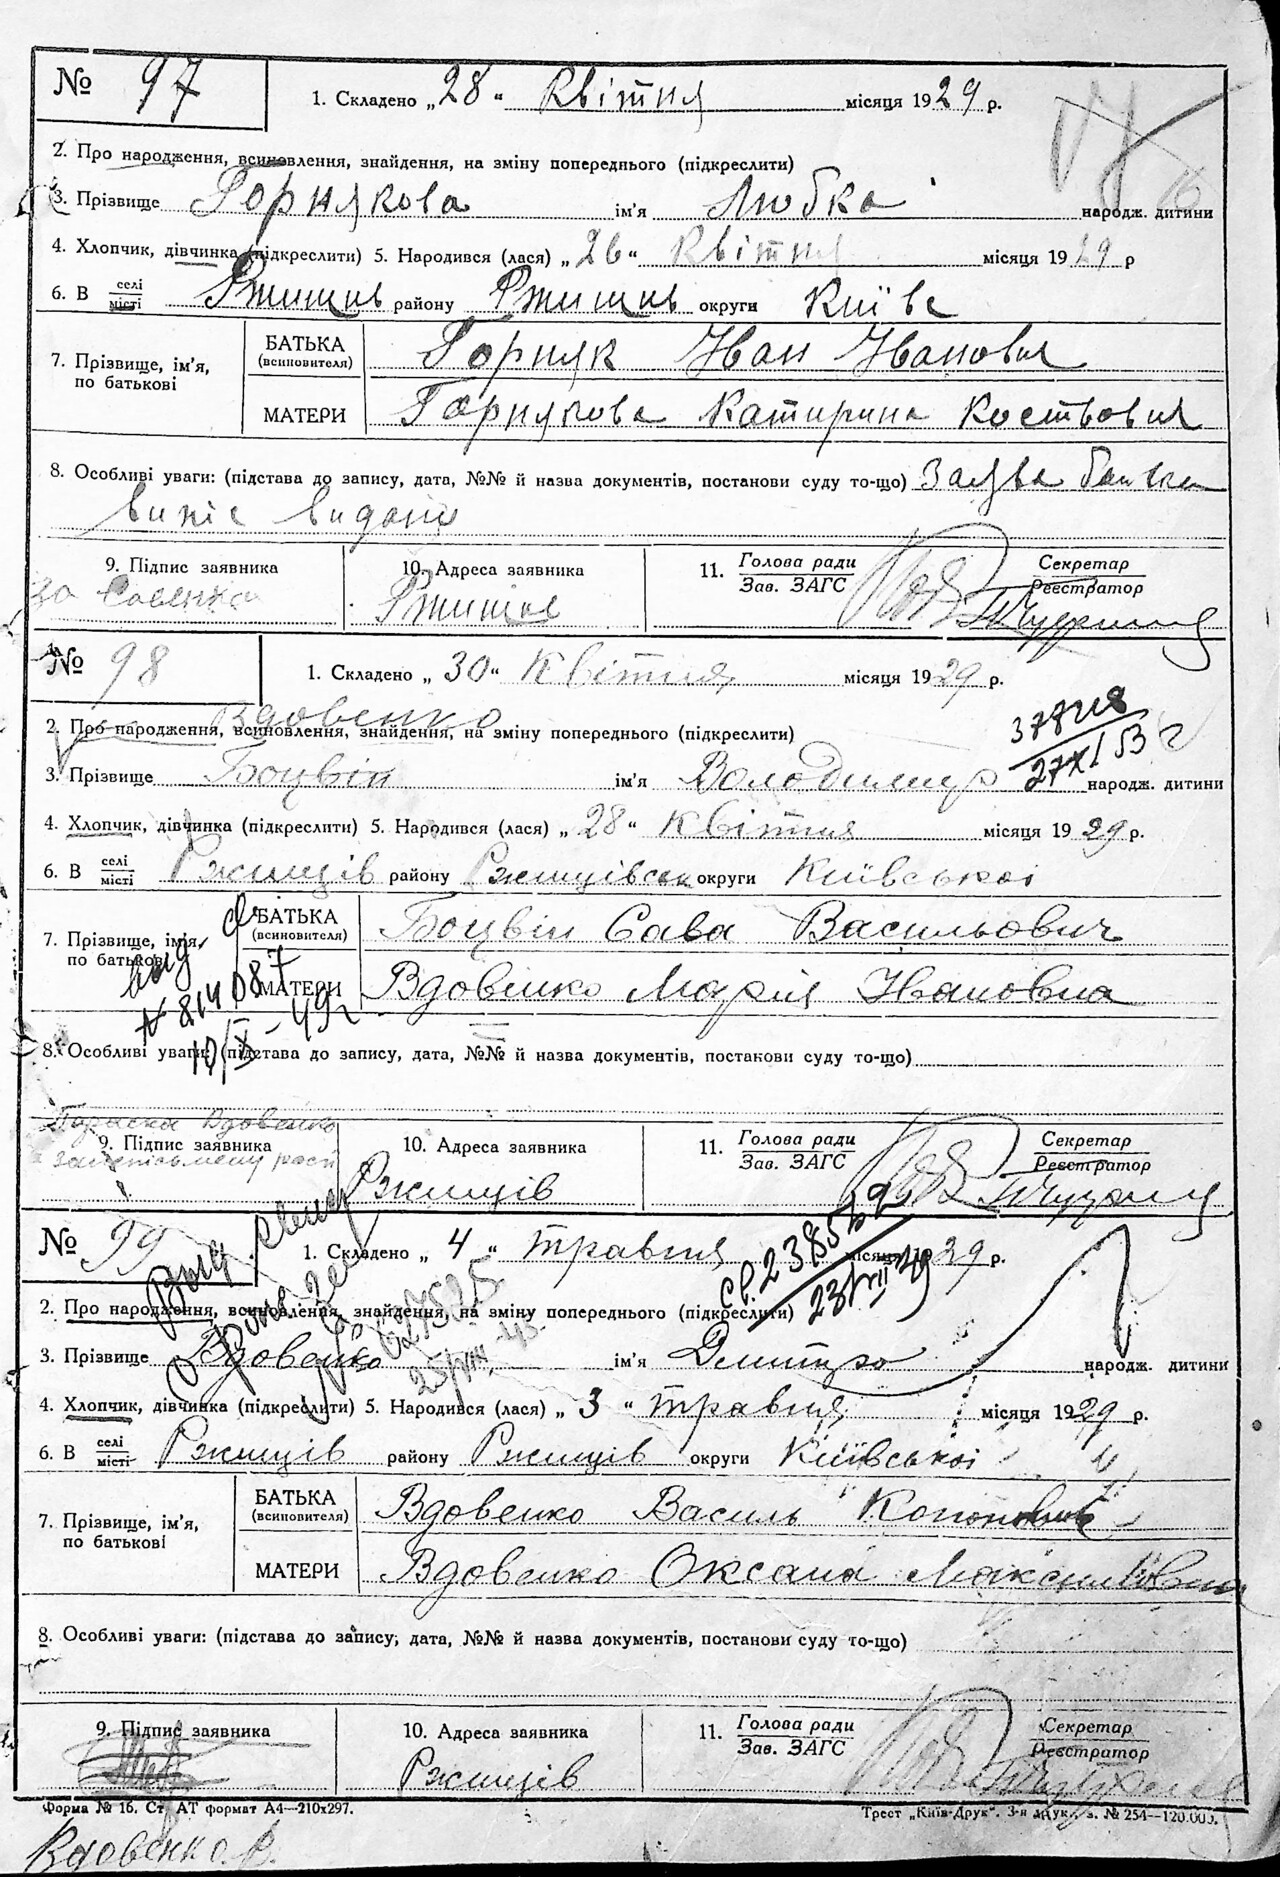 № 97
1. Складено „28" Квітня місяця 1929 р.
2. Про народження, всиновлення, знайдення, на зміну попереднього (підкреслити)
3. Прізвище Горнякова ім'я Любка народж. дитини
4. Хлопчик, дівчинка (підкреслити) 5. Народився (лася) „26" Квітня місяця 1929 р
6. В селі/місті Ржищив району Ржищив округи Київс
7. Прізвище, ім'я, по батькові
БАТЬКА (всиновителя) Горняк Иван Иванович
МАТЕРИ Горнякова Катирина
8. Особливі уваги: (підстава до запису, дата, №№ й назва документів, постанови суду то-що) Заява батька
9. Підпис заявника 10. Адреса заявника 11. Голова ради/Зав. ЗАГС Секретар/Реєстратор
Ржищив
№ 98
1. Складено „30" Квітня, місяця 1929 р.
Вдовенко
2. Про народження, всиновлення, знайдення, на зміну попереднього (підкреслити)
3. Прізвище Боцвін ім'я Володимир народж. дитини
4. Хлопчик, дівчинка (підкреслити) 5. Народився (лася) „28" Квітня місяця 1929 р.
6. В селі/місті Ржищів району Ржищівськ округи Київської
7. Прізвище, ім'я, по батькові
БАТЬКА (всиновителя) Боцвін Сава Васильович
МАТЕРИ Вдовенко Марія Ивановна
№ 814087
10/X-49г
8. Особливі уваги: (підстава до запису, дата, №№ й назва документів, постанови суду то-що)
Вдовенко
9. Підпис заявника 10. Адреса заявника 11. Голова ради/Зав. ЗАГС Секретар/Реєстратор
Ржищів
№ 99
1. Складено „4" травня місяця 1929 р.
2. Про народження, всиновлення, знайдення, на зміну попереднього (підкреслити)
3. Прізвище Вдовенко ім'я Дмитро народж. дитини
4. Хлопчик, дівчинка (підкреслити) 5. Народився (лася) „3" травня місяця 1929 р.
6. В селі/місті Ржищів району Ржищів округи Київської
7. Прізвище, ім'я, по батькові
БАТЬКА (всиновителя) Вдовенко Василь
МАТЕРИ Вдовенко Оксана Максимовна
8. Особливі уваги: (підстава до запису, дата, №№ й назва документів, постанови суду то-що)
9. Підпис заявника 10. Адреса заявника 11. Голова ради/Зав. ЗАГС Секретар/Реєстратор
Ржищів
Форма № 16. Ст. АТ формат А4—210х297. Трест „Київ-Друк". 3-я друк., з. № 254—120.000.
Вдовенко. В.